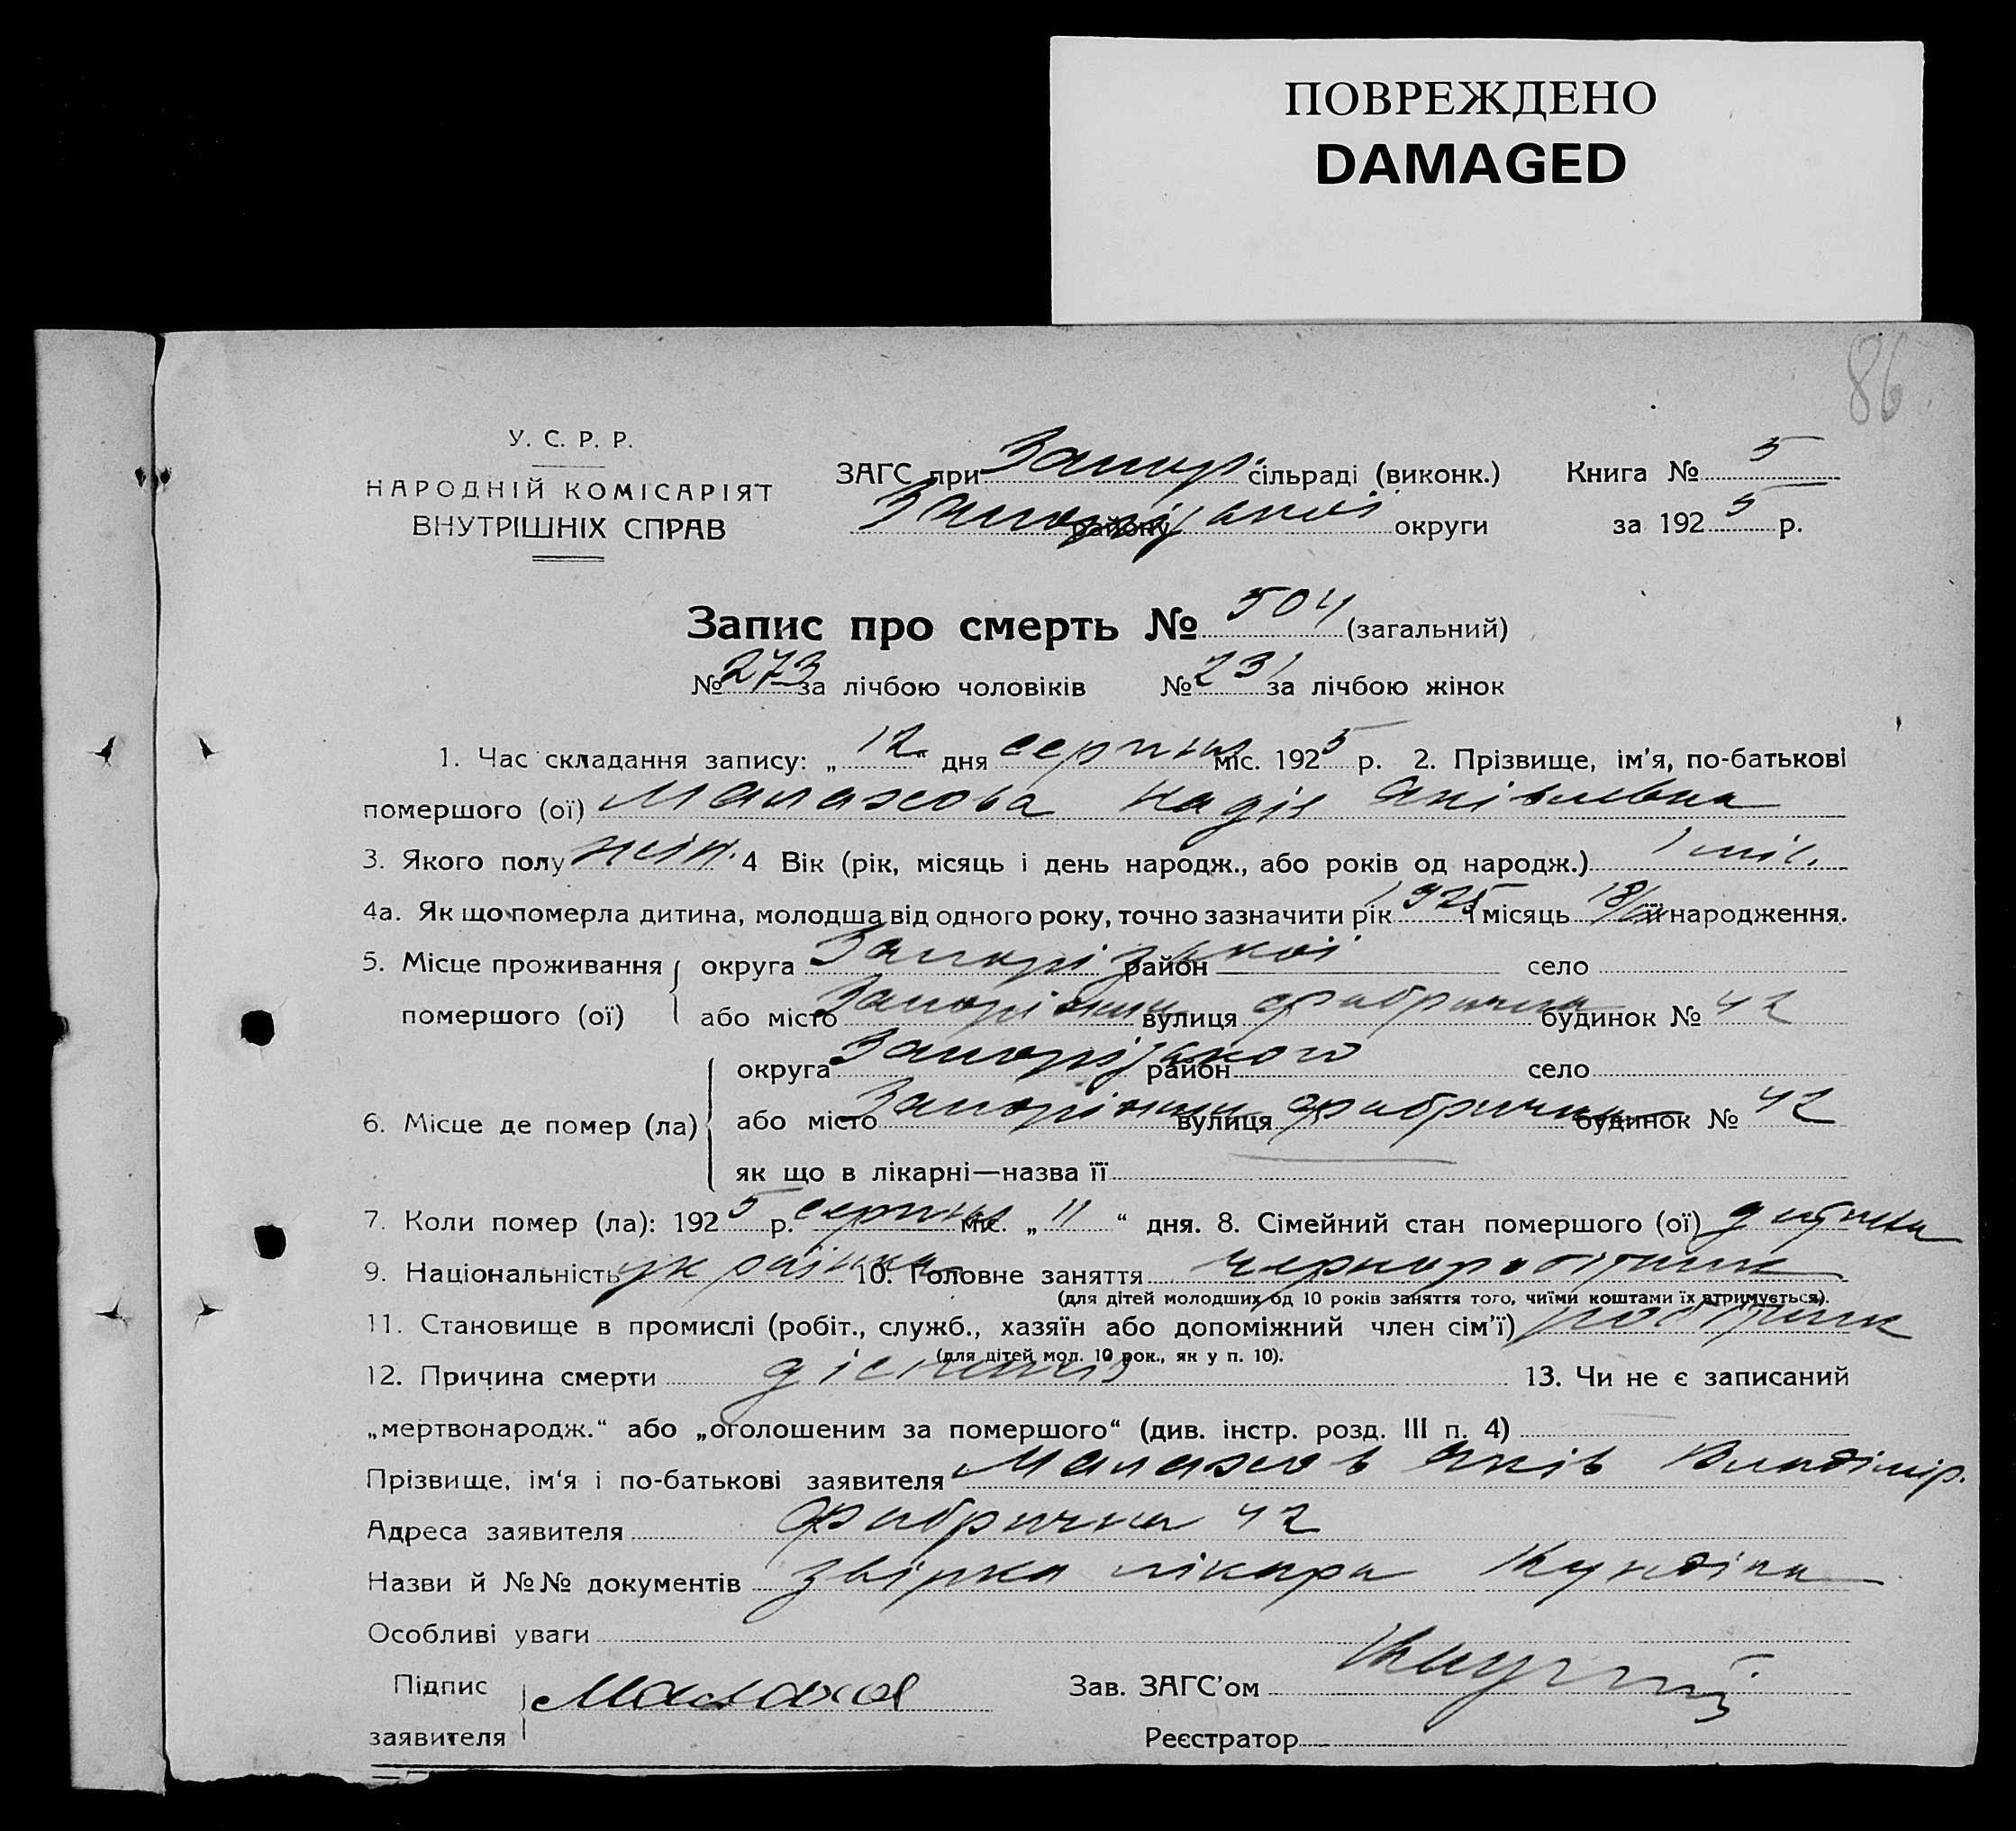 ПОВРЕЖДЕНО
DAMAGED
86
У. С. Р. Р.
НАРОДНІЙ КОМІСАРІЯТ
ВНУТРІШНІХ СПРАВ
ЗАГС при Запор. сільраді (виконк.) Книга № 5
району Запорізької округи за 1925 р.
Запис про смерть № 504 (загальний)
№ 273 за лічбою чоловіків № 231 за лічбою жінок
1. Час складання запису: „12“ дня серпня міс. 1925 р. 2. Прізвище, ім'я, по-батькові
помершого (ої) Малахова Надія Яківлевна
3. Якого полу жін. 4 Вік (рік, місяць і день народж., або років од народж.) 1 міс.
4а. Як що померла дитина, молодша від одного року, точно зазначити рік 1925 і місяць її народження.
5. Місце проживання помершого (ої) округа Запорізької район село
або місто Запоріжжя вулиця Фабрична будинок № 42
6. Місце де помер (ла) округа Запорізького район село
або місто Запоріжжя вулиця Фабрична будинок № 42
як що в лікарні—назва її
7. Коли помер (ла): 1925 р. серпня міс. „11“ дня. 8. Сімейний стан помершого (ої) дитина
9. Національність українка 10. Головне заняття чорноробітник
(для дітей молодших од 10 років заняття того, чиїми коштами їх втримується).
11. Становище в промислі (робіт., служб., хазяїн або допоміжний член сім'ї) робітник
(для дітей мол. 10 рок., як у п. 10).
12. Причина смерти 13. Чи не є записаний
„мертвонародж.“ або „оголошеним за помершого“ (див. інстр. розд. III п. 4)
Прізвище, ім'я і по-батькові заявителя Малахов Яків Владімір.
Адреса заявителя Фабрична 42
Назви й №№ документів звірка лікаря
Особливі уваги
Підпис заявителя Малахов Зав. ЗАГС'ом
Реєстратор